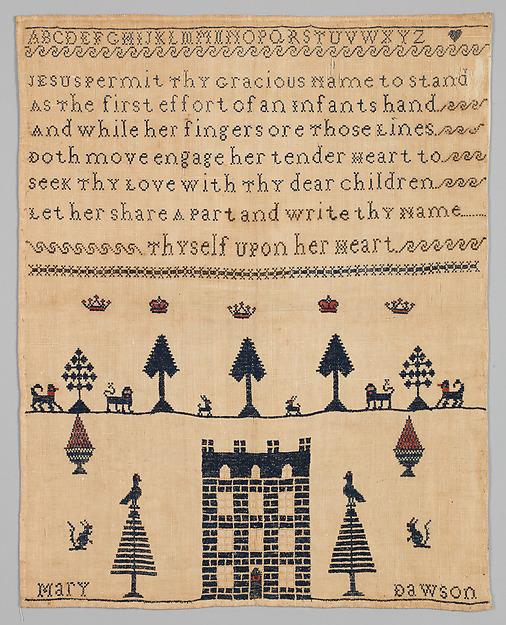 ABCDEFGHIJKLMNOPQRSTUVWXYZ
JESUS Permit Thy Gracious Name to stand
As The first effort of an Infants hand
And while her fingers ore Those Lines
Doth move engage her tender Heart to
seek Thy Love with Thy dear children
Let her share A Part and write thy Name
Thyself upon her Heart
Mary Dawson